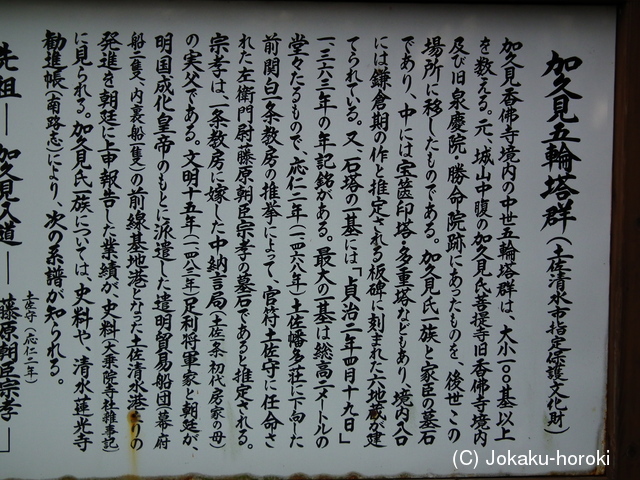 加久見五輪塔群（土佐清水市指定保護文化財）
加久見香佛寺境内の中世五輪塔群は、大小一〇〇基以上
を数える。元、城山中腹の加久見氏菩提寺旧香佛寺境内
及び旧泉慶院・勝命院跡にあったものを、後世この
場所に移したものである。加久見氏一族と家臣の墓石
であり、中には宝篋印塔・多重塔などもあり、境内入口
には鎌倉期の作と推定される板碑に刻まれた六地蔵が建
てられている。又、石塔の一基には「貞治二年四月十九日」
一、三六三年の年記銘がある。最大の一基は総高二メートルの
堂々たるもので、応仁二年（一四六八年）土佐幡多荘に下向した
前関白一条教房の推挙によって、官符土佐守に任命さ
れた左衛門尉藤原朝臣宗孝の墓石であると推定される。
宗孝は、一条教房に嫁した中納言局（土佐一条初代房家の母）
の実父である。文明十五年（一四八三年）足利将軍家と朝廷が、
明国成化皇帝のもとに派遣した遣明貿易船団（幕府
船二隻、内裏船一隻）の前線基地港となった土佐清水港よりの
発進を朝廷に上申報告した業績が、史料（大乗院寺社雑事記）
に見られる。加久見氏一族については、史料や、清水蓮光寺
勧進帳（南路志）により、次の系譜が知られる。
土佐守（応仁二年）
先祖―加久見入道―藤原朝臣宗孝―
(C) Jokaku-horoki